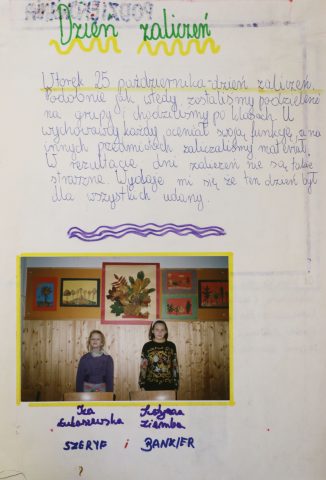 Dzień zaliczeń
Wtorek 25 października-dzień zaliczeń.
Podobnie jak wtedy zostaliśmy podzieleni
na grupy i chodziliśmy po klasach. U
wychowawcy każdy oceniał swoją funkcję, a na
innych przedmiotach zaliczaliśmy materiał.
W rezultacie dni zaliczeń nie są takie
straszne. Wydaje mi się że ten dzień był
dla wszystkich udany.
Iza
Łukaszewska
Ziemba
SZERYF i BANKIER
?